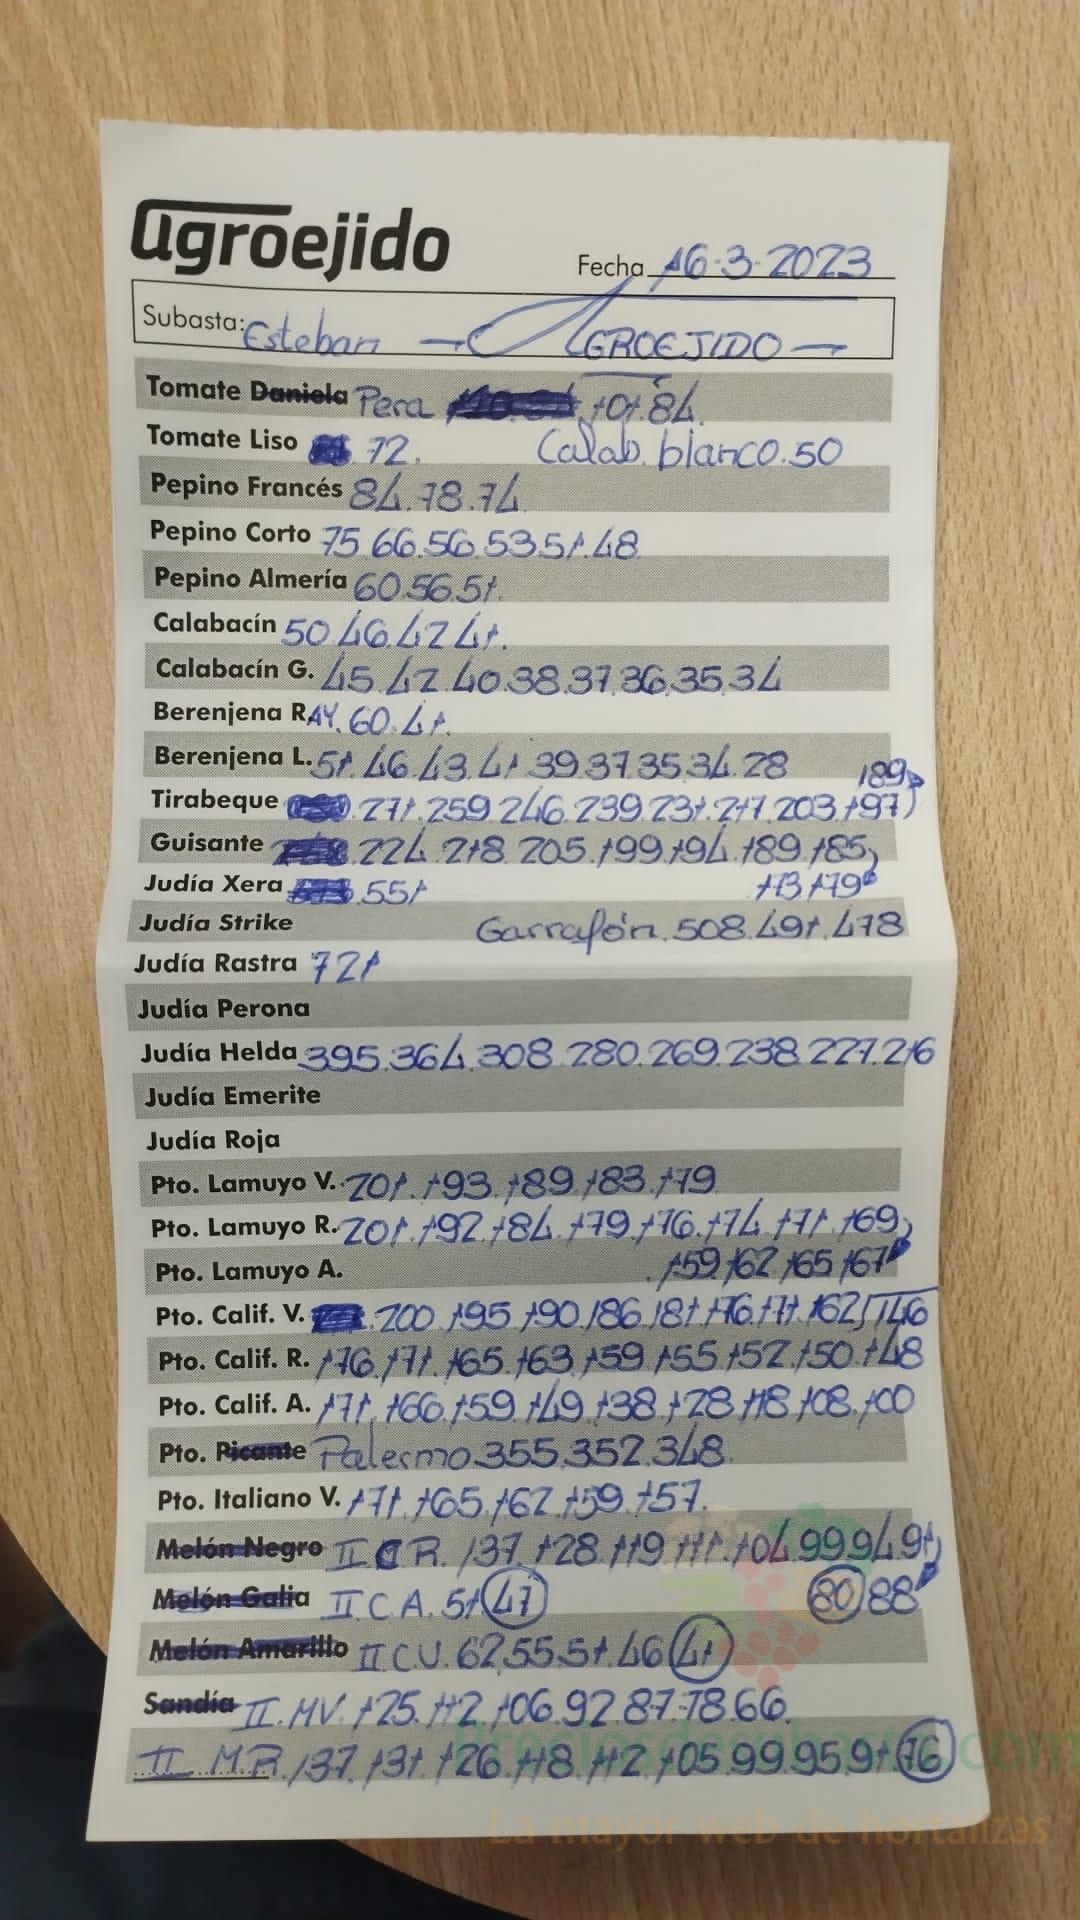 agroejido
Fecha 16-3-2023
Subasta: Esteban — AGROEJIDO —
Tomate Daniela Pera 101.84.
Tomate Liso 72. Calab. blanco.50
Pepino Francés 84.78.74
Pepino Corto 75.66.56.53.51.48
Pepino Almería 60.56.51.
Calabacín 50.46.42.41.
Calabacín G. 45.42.40.38.37.36.35.34
Berenjena RAY. 60.41.
Berenjena L. 51.46.43.41.39.37.35.34.28
189
Tirabeque 271.259.246.239.231.217.203.197
Guisante 224.218.205.199.194.189.185
Judía Xera 551 173.179
Judía Strike Garrafón.508.491.478
Judía Rastra 721
Judía Perona
Judía Helda 395.364.308.280.269.238.227.216
Judía Emerite
Judía Roja
Pto. Lamuyo V. 201.193.189.183.179
Pto. Lamuyo R. 201.192.184.179.176.174.171.169
Pto. Lamuyo A. .159.162.165.167
Pto. Calif. V. 200.195.190.186.181.176.171.162 146
Pto. Calif. R. 176.171.165.163.159.155.152.150.148
Pto. Calif. A. 171.166.159.149.138.128.118.108.100
Pto. Picante Palermo.355.352.348.
Pto. Italiano V. 171.165.162.159.157.
Melón Negro II C R. 137.128.119.111.104.99.94.91
Melón Galia II C A. 51 47 80 88
Melón Amarillo II C V. 62.55.51.46 41
Sandía II. MV. 125.112.106.92.87.78.66.
II M R. 137.131.126.118.112.105.99.95.91 76
La mayor web de hortalizas